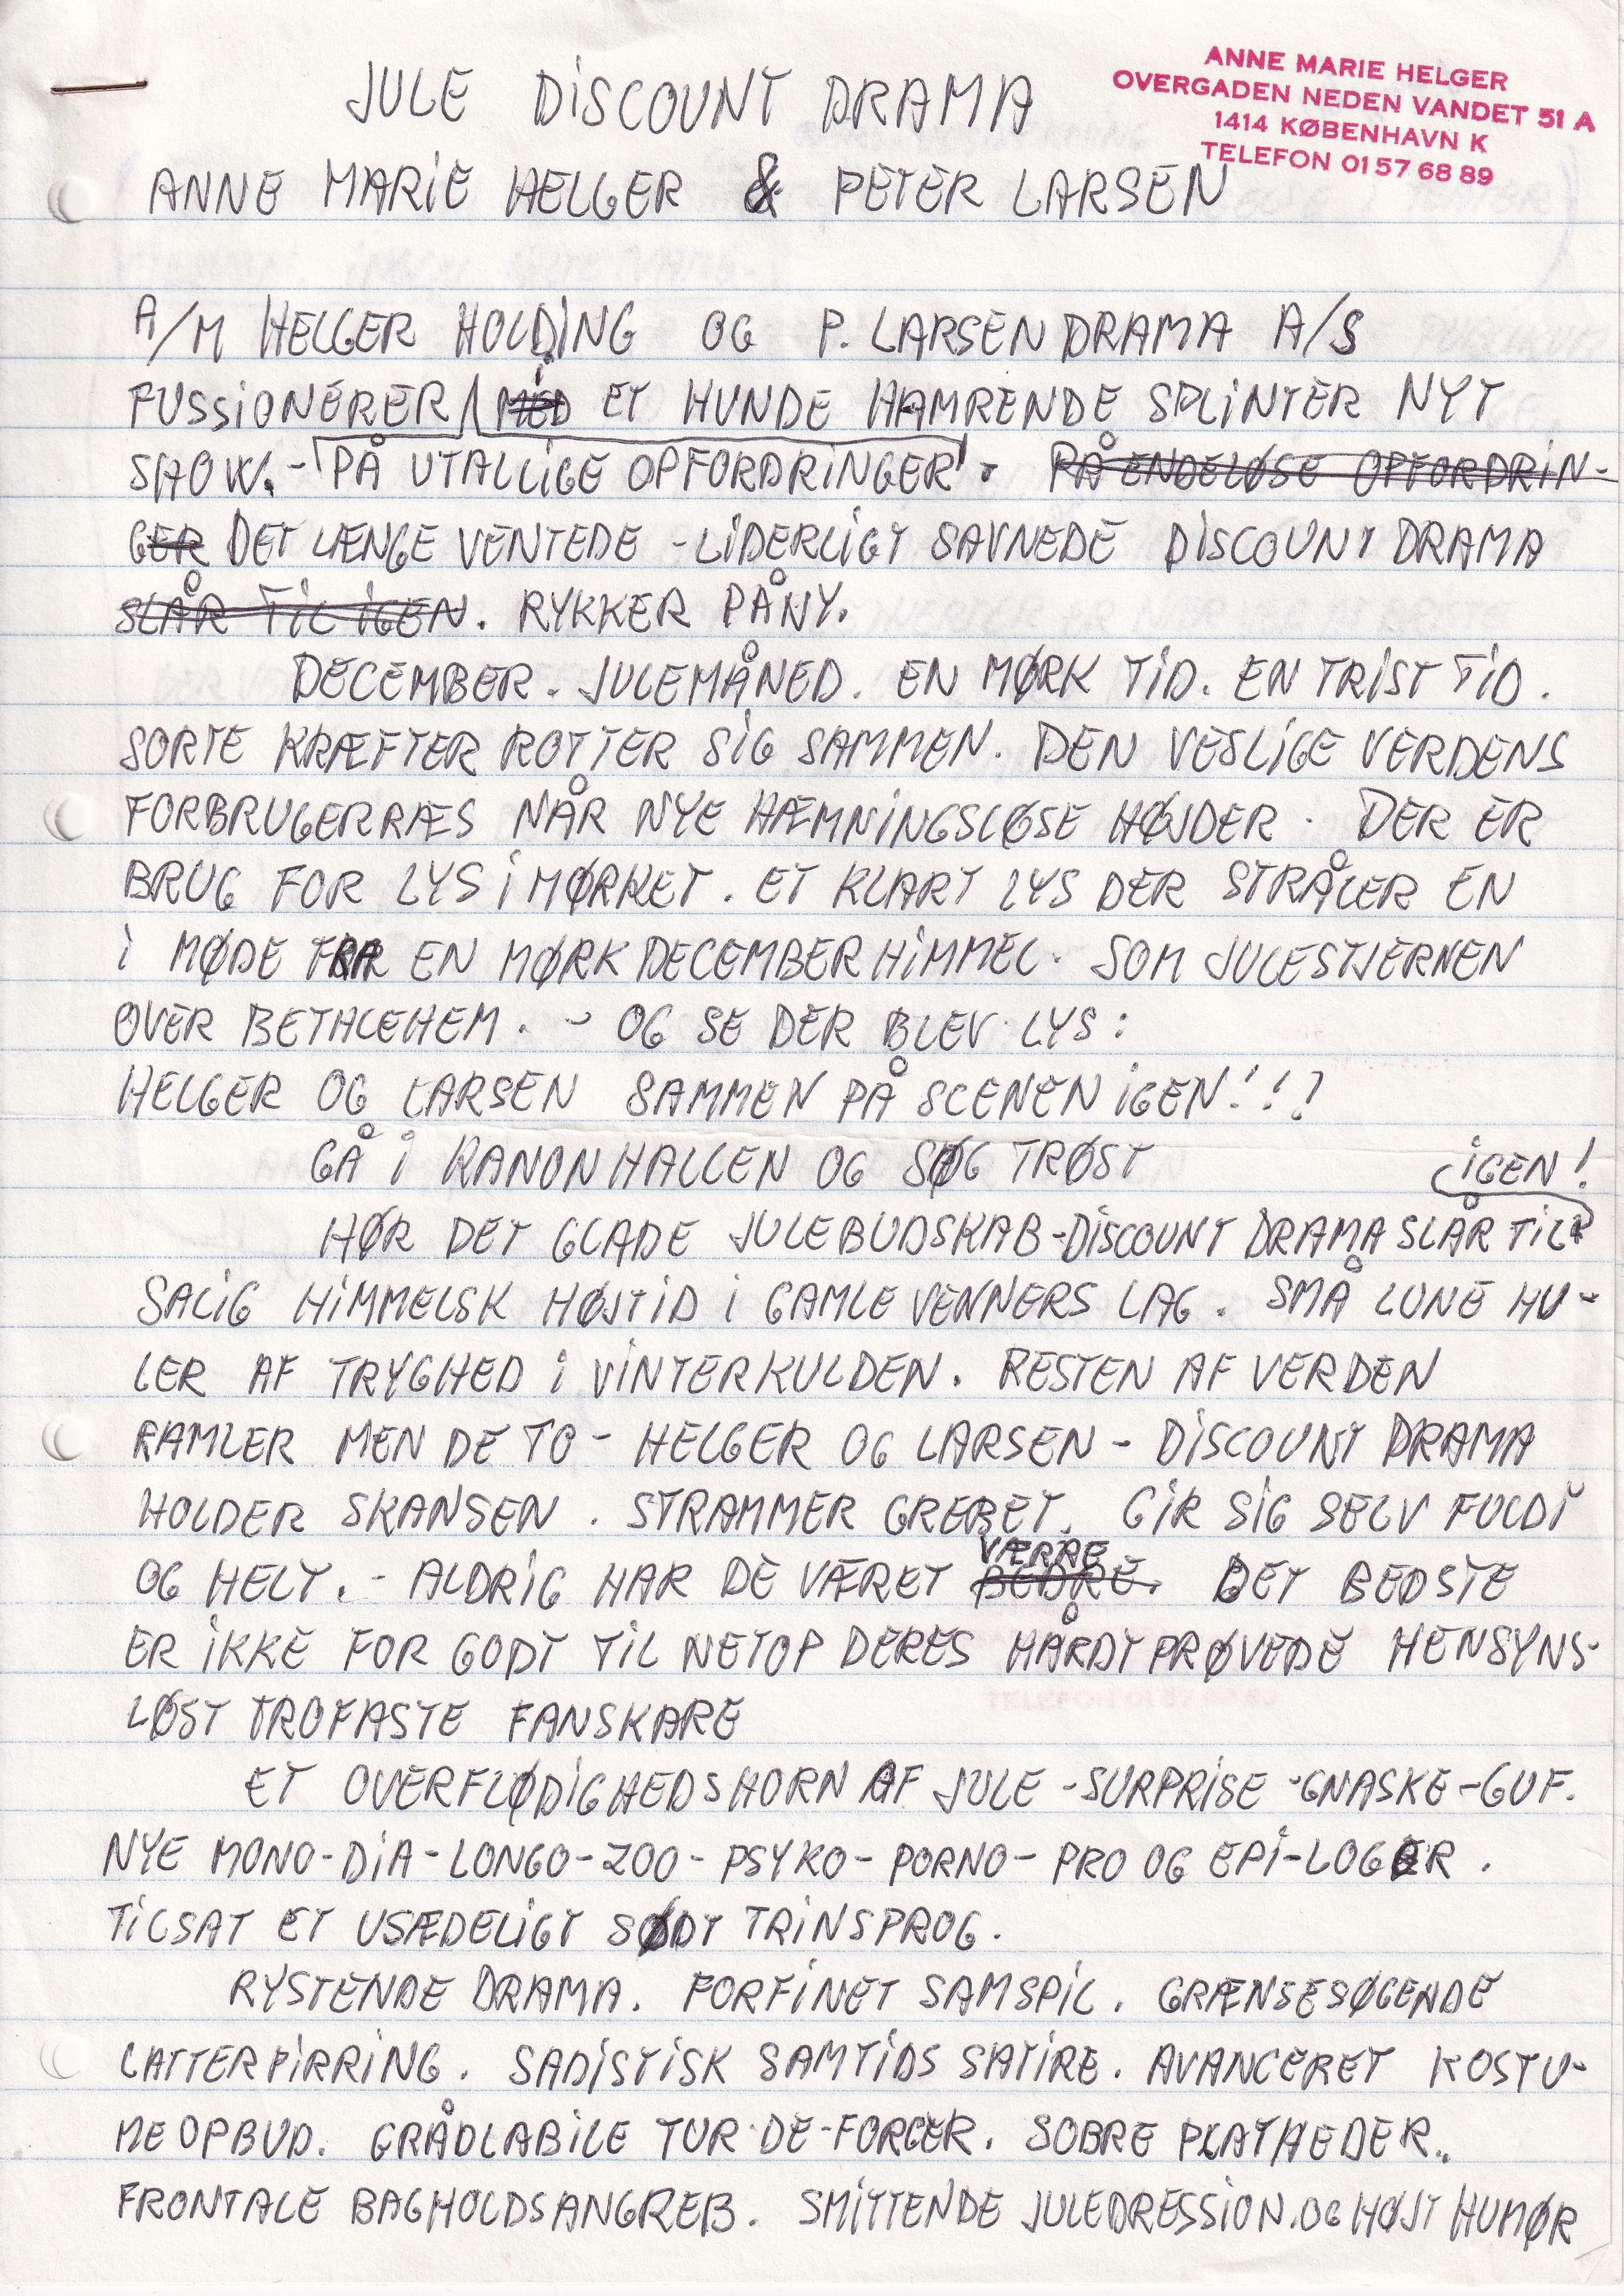 JULE DISCOUNT DRAMA
ANNE MARIE HELGER
OVERGADEN NEDEN VANDET 51 A
1414 KØBENHAVN K
TELEFON 01 57 68 89
ANNE MARIE HELGER & PETER LARSEN
A/M HELGER HOLDING OG P. LARSEN DRAMA A/S
FUSSIONERER I MED ET HUNDE HAMRENDE SPLINTER NYT
SHOW. - PÅ UTALLIGE OPFORDRINGER. PÅ ENDELØSE OPFORDRIN-
GER DET LÆNGE VENTEDE - LIDERLIGT SAVNEDE DISCOUNT DRAMA
SLÅR TIL IGEN. RYKKER PÅNY.
DECEMBER. JULEMÅNED. EN MØRK TID. EN TRIST TID.
SORTE KRÆFTER ROTTER SIG SAMMEN. DEN VESLIGE VERDENS
FORBRUGERRÆS NÅR NYE HÆMNINGSLØSE HØJDER. DER ER
BRUG FOR LYS I MØRKET. ET KLART LYS DER STRÅLER EN
I MØDE FRA EN MØRK DECEMBER HIMMEL. SOM JULESTJERNEN
OVER BETHLEHEM. - OG SE DER BLEV LYS:
HELGER OG LARSEN SAMMEN PÅ SCENEN IGEN!!!
GÅ I KANONHALLEN OG SØG TRØST
IGEN!
HØR DET GLADE JULEBUDSKAB - DISCOUNT DRAMA SLÅR TIL
SALIG HIMMELSK HØJTID I GAMLE VENNERS LAG. SMÅ LUNE HU-
LER AF TRYGHED I VINTERKULDEN. RESTEN AF VERDEN
RAMLER MEN DE TO - HELGER OG LARSEN - DISCOUNT DRAMA
HOLDER SKANSEN. STRAMMER GREBET. GIR SIG SELV FULDT
VÆRRE
OG HELT. - ALDRIG HAR DE VÆRET BEDRE. DET BEDSTE
ER IKKE FOR GODT TIL NETOP DERES HÅRDT PRØVEDE HENSYNS-
LØST TROFASTE FANSKARE
ET OVERFLØDIGHEDSHORN AF JULE - SURPRISE - GNASKE - GUF.
NYE MONO - DIA - LONGO - ZOO - PSYKO - PORNO - PRO OG EPI - LOGER.
TILSAT ET USÆDELIGT SØDT TRINSPROG.
RYSTENDE DRAMA. FORFINET SAMSPIL. GRÆNSESØGENDE
LATTERPIRRING. SADISTISK SAMTIDS SATIRE. AVANCERET KOSTU-
MEOPBUD. GRÅDLABILE TUR-DE-FORCER. SOBRE PLATHEDER.
FRONTALE BAGHOLDSANGREB. SMITTENDE JULEDRESSION. OG HØJT HUMØR